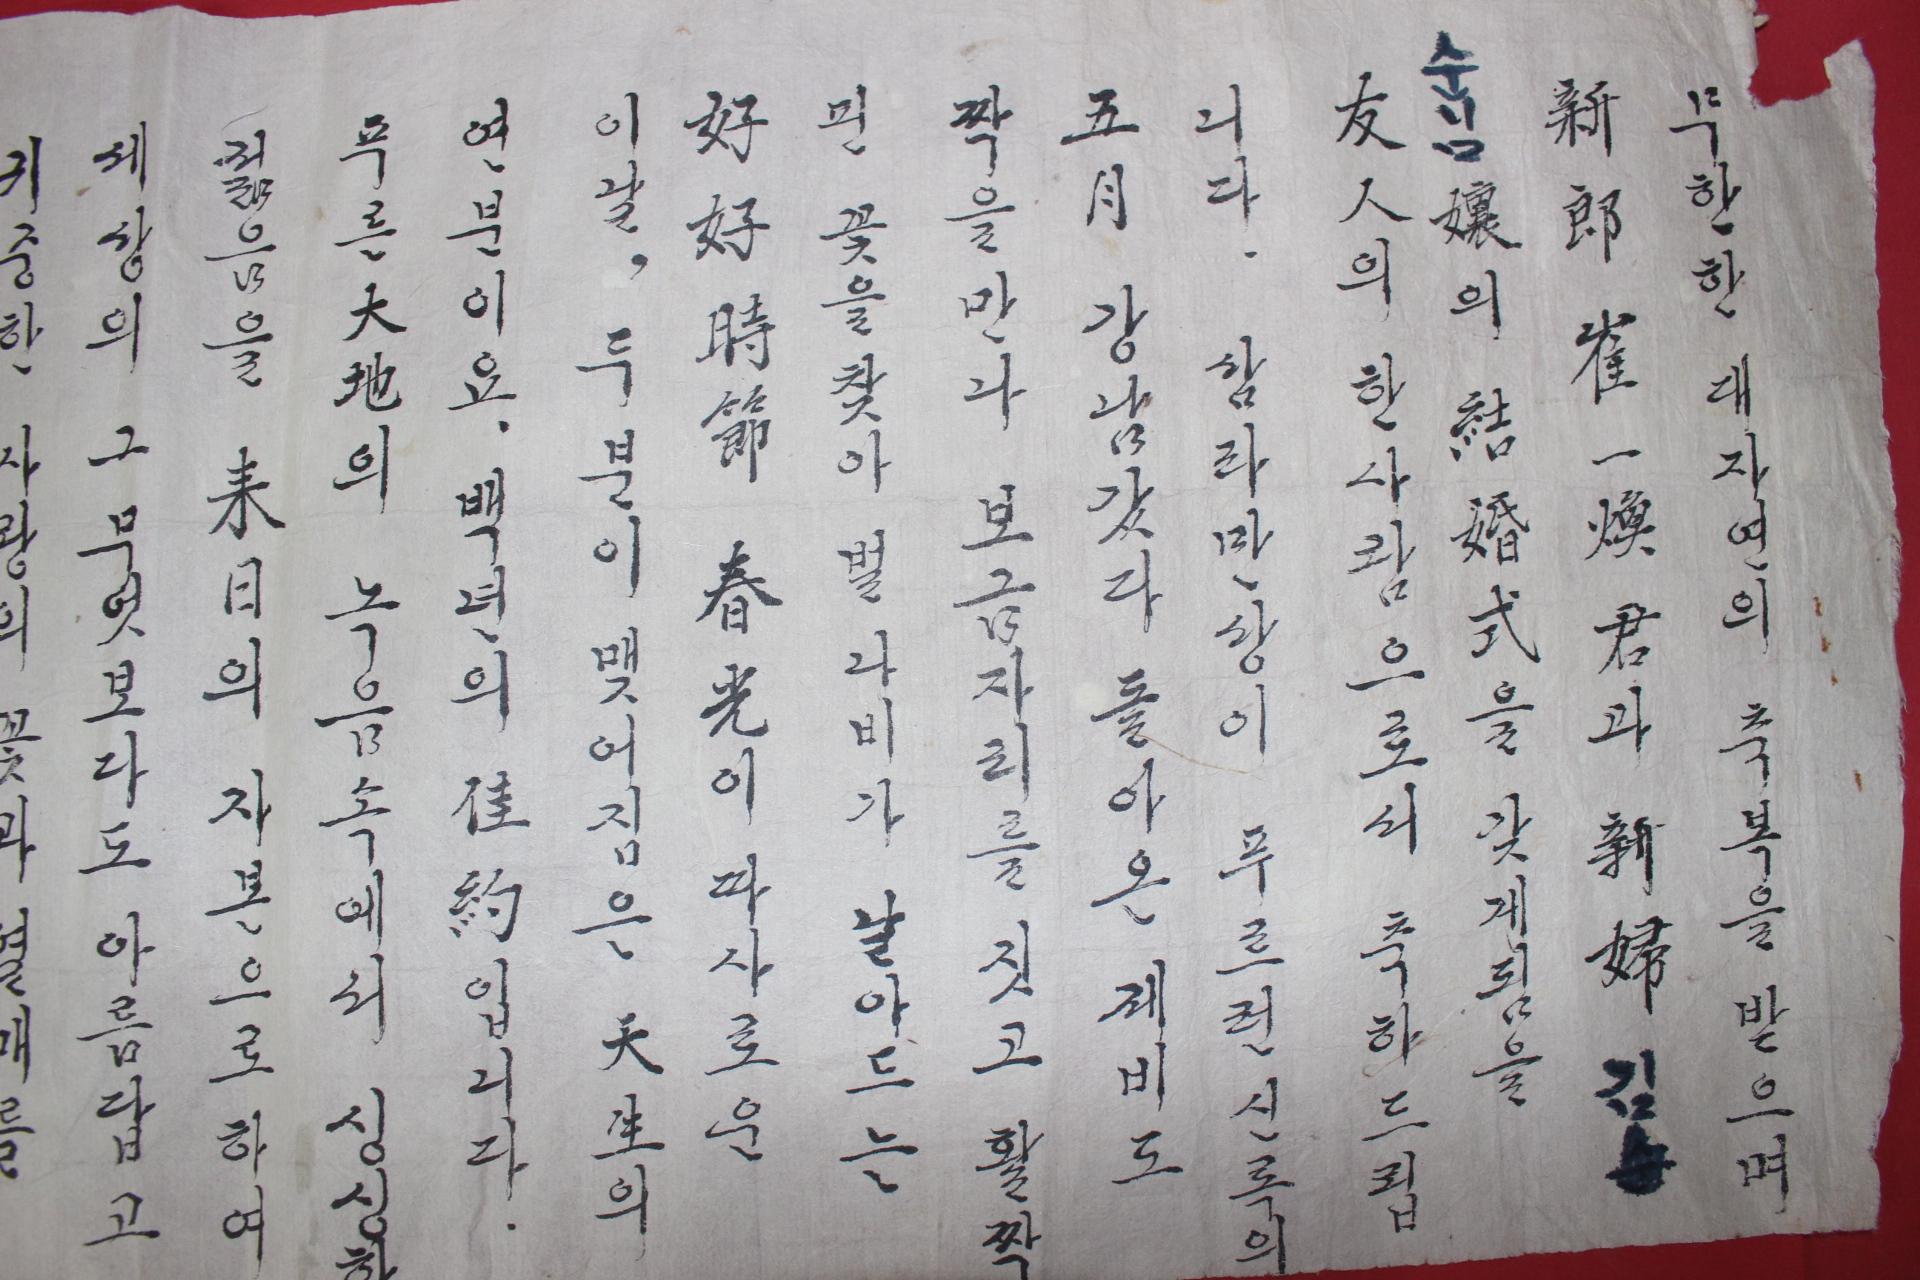 무한한 대자연의 축복을 받으며
新郎 崔一煥君과 新婦 김
숙임孃의 結婚式을 갖게됨을
友人의 한사람으로서 축하드립
니다. 삼라만상이 푸르런 신록의
五月 강남갔다 돌아온 제비도
짝을 만나 보금자리를 짓고 활짝
핀 꽃을 찾아 벌나비가 날아드는
好好時節 春光이 따사로운
이날, 두분이 맺어짐은 天生의
연분이요. 백년의 佳約입니다.
푸른大地의 녹음속에서 싱싱한
젊음을 来日의 자본으로하여
세상의 그무엇보다도 아름답고
귀중한 사랑의 꽃과 열매를